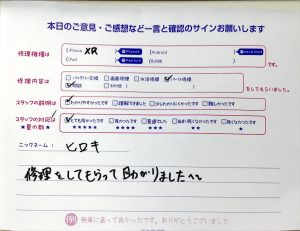 本日のご意見・ご感想など一言と確認のサインお願いします
修理機種は
iPhone XR
Android
iPad
その他
です。
修理内容は
バッテリー交換
画面修理
水没修理
パーツ修理
その他
をしてもらいました。
スタッフの説明は
わかりやすかったです
理解できました
少しわかりにくかったです
難しかったです
スタッフの対応は
とても良かったです
良かったです
普通でした
あまり良くなかったです
良くなかったです
★星の数★
★★★★★
★★★★
★★★
★★
★
ニックネーム：ヒロキ
修理をしてもらって助かりました〜
無事に直って良かったです。ありがとうございました